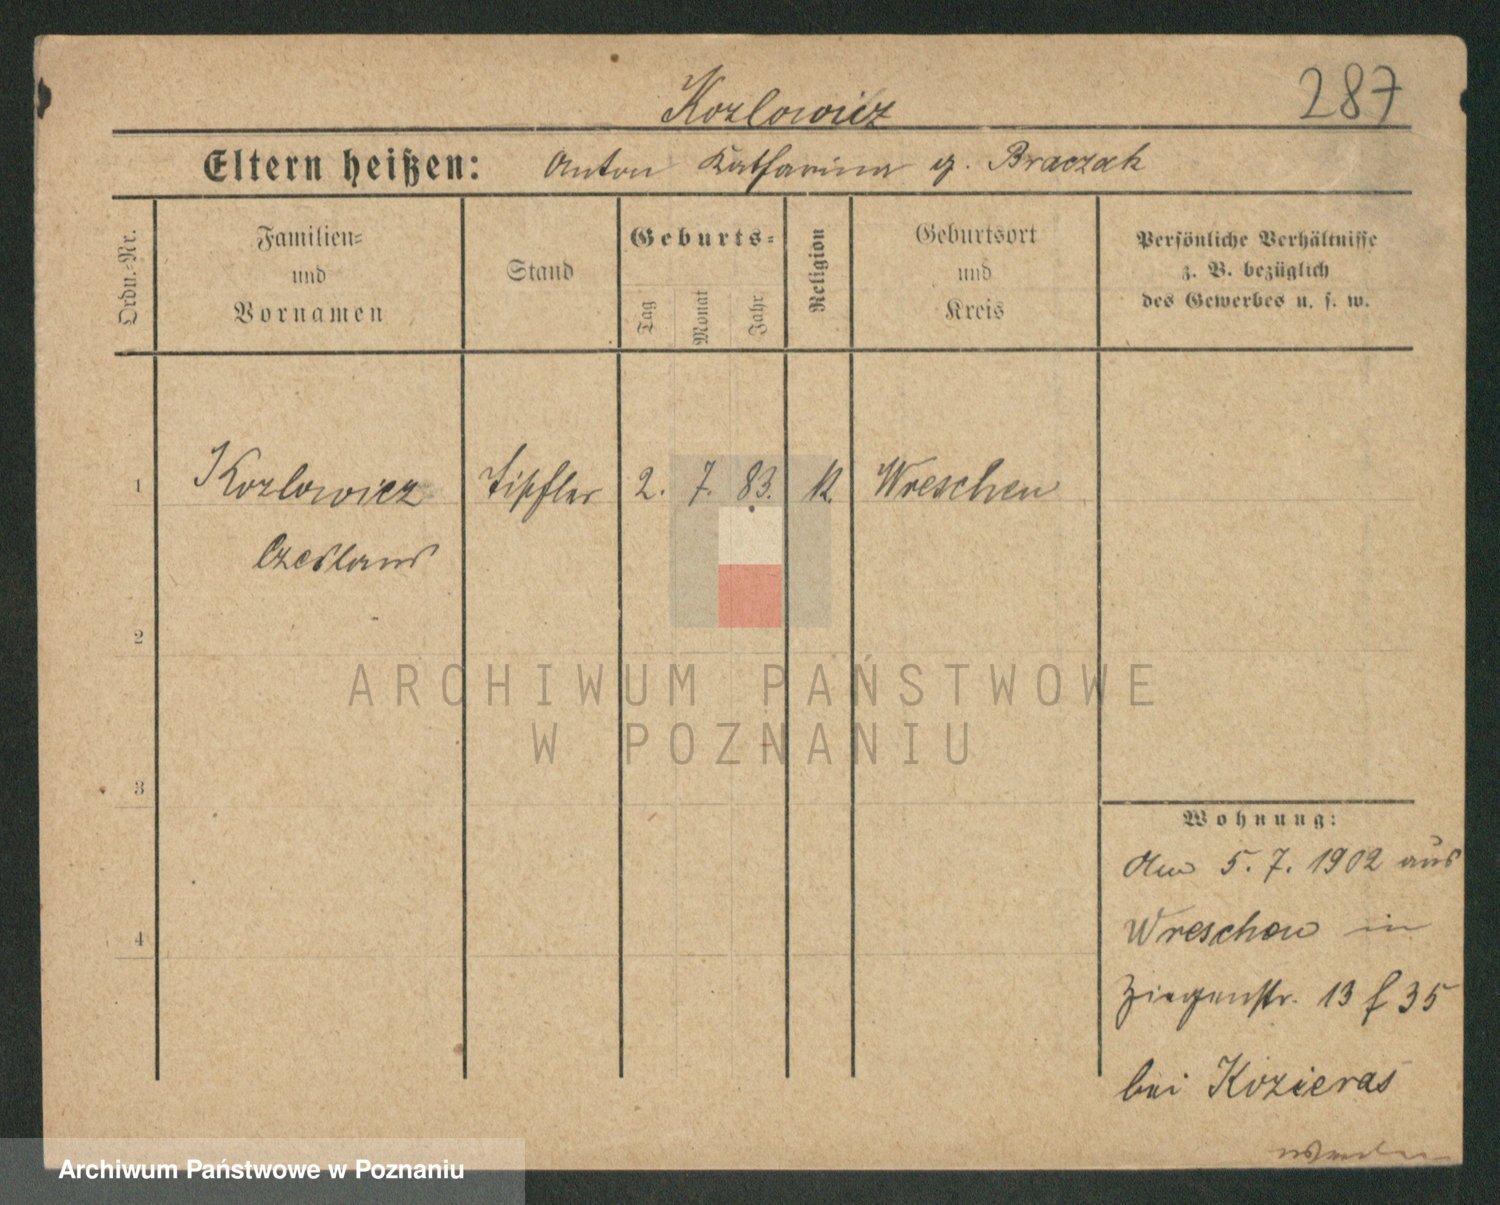 Kozlowicz
287
Eltern heißen: Anton Katharina g. Braczak
Ordn.-Nr.
Familien-
und
Vornamen
Stand
Geburts-
Tag
Monat
Jahr
Religion
Geburtsort
und
Kreis
Persönliche Verhältnisse
z. B. bezüglich
des Gewerbes u. s. w.
1 Kozlowicz Tischler 2. 7. 83. K. Wreschen
Czeslaus
2
3
4
Wohnung:
Am 5. 7. 1902 aus
Wreschen in
Ziegenstr. 13 f 35
bei Kozieras
ARCHIWUM PAŃSTWOWE
W POZNANIU
Archiwum Państwowe w Poznaniu